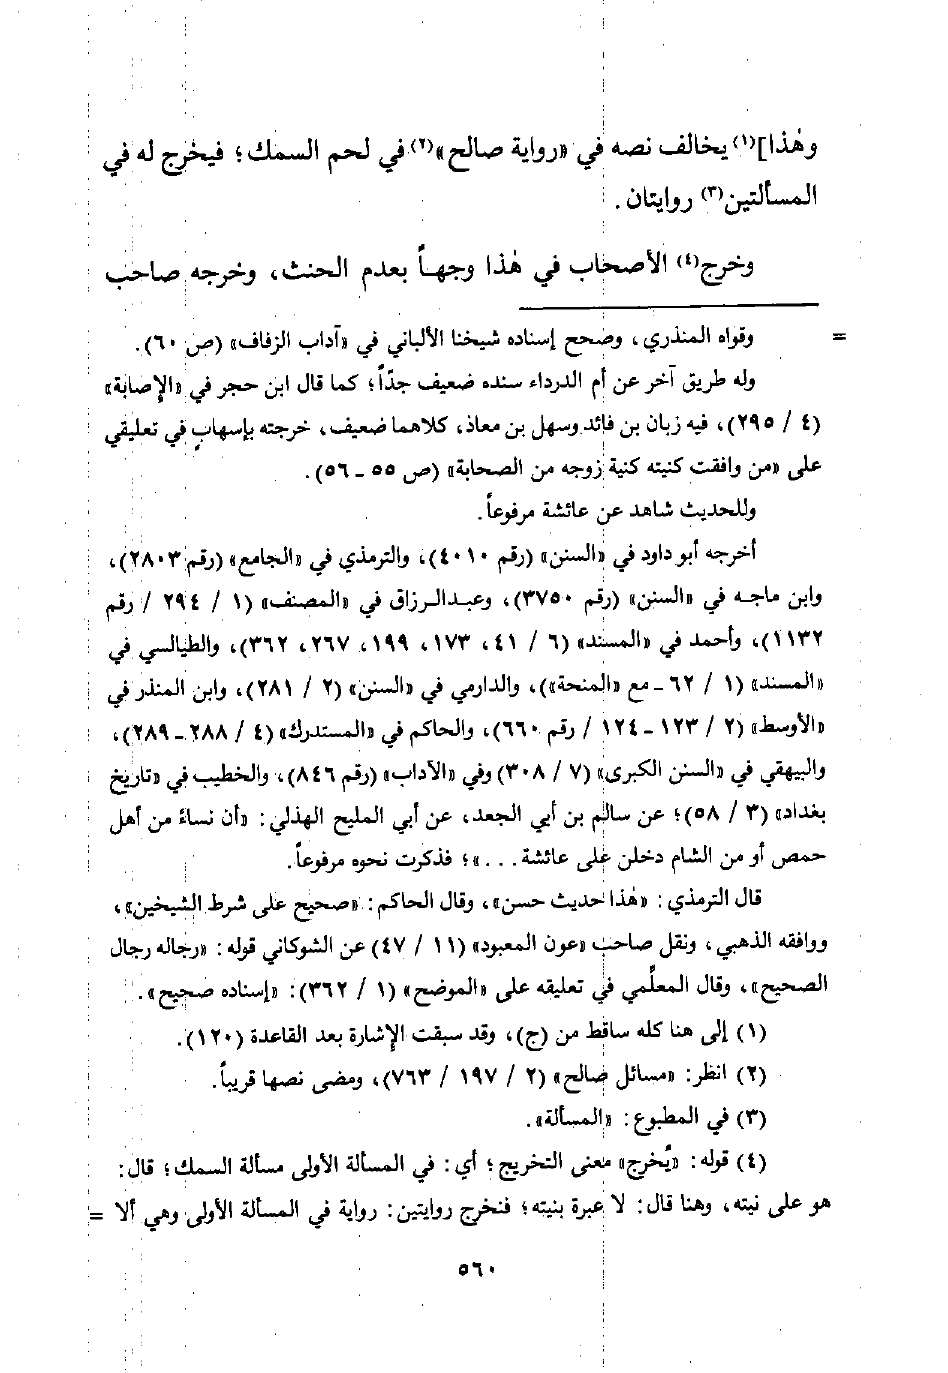 وهٰذا](١) يخالف نصه في «رواية صالح»(٢) في لحم السمك؛ فيخرج له في
المسألتين(٣) روايتان.
وخرج(٤) الأصحاب في هٰذا وجهاً بعدم الحنث، وخرجه صاحب
= وقواه المنذري، وصحح إسناده شيخنا الألباني في «آداب الزفاف» (ص ٦٠).
وله طريق آخر عن أم الدرداء سنده ضعيف جدّاً؛ كما قال ابن حجر في «الإصابة»
(٤ / ٢٩٥)، فيه زبان بن فائد وسهل بن معاذ، كلاهما ضعيف، خرجته بإسهابٍ في تعليقي
على «من وافقت كنيته كنية زوجه من الصحابة» (ص ٥٥ ـ ٥٦).
وللحديث شاهد عن عائشة مرفوعاً.
أخرجه أبو داود في «السنن» (رقم ٤٠١٠)، والترمذي في «الجامع» (رقم ٢٨٠٣)،
وابن ماجه في «السنن» (رقم ٣٧٥٠)، وعبدالرزاق في «المصنف» (١ / ٢٩٤ / رقم
١١٣٢)، وأحمد في «المسند» (٦ / ٤١، ١٧٣، ١٩٩، ٢٦٧، ٣٦٢)، والطيالسي في
«المسند» (١ / ٦٢ ـ مع «المنحة»)، والدارمي في «السنن» (٢ / ٢٨١)، وابن المنذر في
«الأوسط» (٢ / ١٢٣ ـ ١٢٤ / رقم ٦٦٠)، والحاكم في «المستدرك» (٤ / ٢٨٨ ـ ٢٨٩)،
والبيهقي في «السنن الكبرى» (٧ / ٣٠٨) وفي «الآداب» (رقم ٨٤٦)، والخطيب في «تاريخ
بغداد» (٣ / ٥٨)؛ عن سالم بن أبي الجعد، عن أبي المليح الهذلي: «أن نساءً من أهل
حمص أو من الشام دخلن على عائشة . . .»؛ فذكرت نحوه مرفوعاً.
قال الترمذي: «هٰذا حديث حسن»، وقال الحاكم: «صحيح على شرط الشيخين»،
ووافقه الذهبي، ونقل صاحب «عون المعبود» (١١ / ٤٧) عن الشوكاني قوله: «رجاله رجال
الصحيح»، وقال المعلِّمي في تعليقه على «الموضح» (١ / ٣٦٢): «إسناده صحيح».
(١) إلى هنا كله ساقط من (ج)، وقد سبقت الإشارة بعد القاعدة (١٢٠).
(٢) انظر: «مسائل صالح» (٢ / ١٩٧ / ٧٦٣)، ومضى نصها قريباً.
(٣) في المطبوع: «المسألة».
(٤) قوله: «يُخرج» معنى التخريج؛ أي: في المسألة الأولى مسألة السمك؛ قال:
هو على نيته، وهنا قال: لا عبرة بنيته؛ فنخرج روايتين: رواية في المسألة الأولى وهي ألا =
٥٦٠